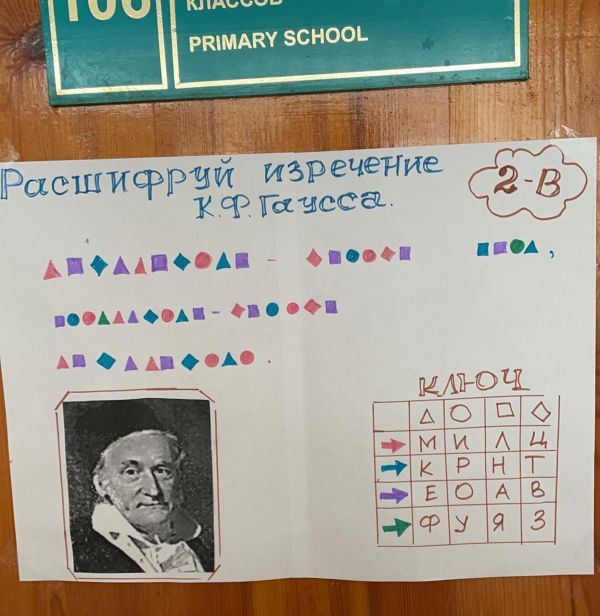 106
КЛАССОВ
PRIMARY SCHOOL
Расшифруй изречение
К.Ф. Гаусса.
2-В
КЛЮЧ
М И Л Ц
К Р Н Т
Е О А В
Ф У Я З